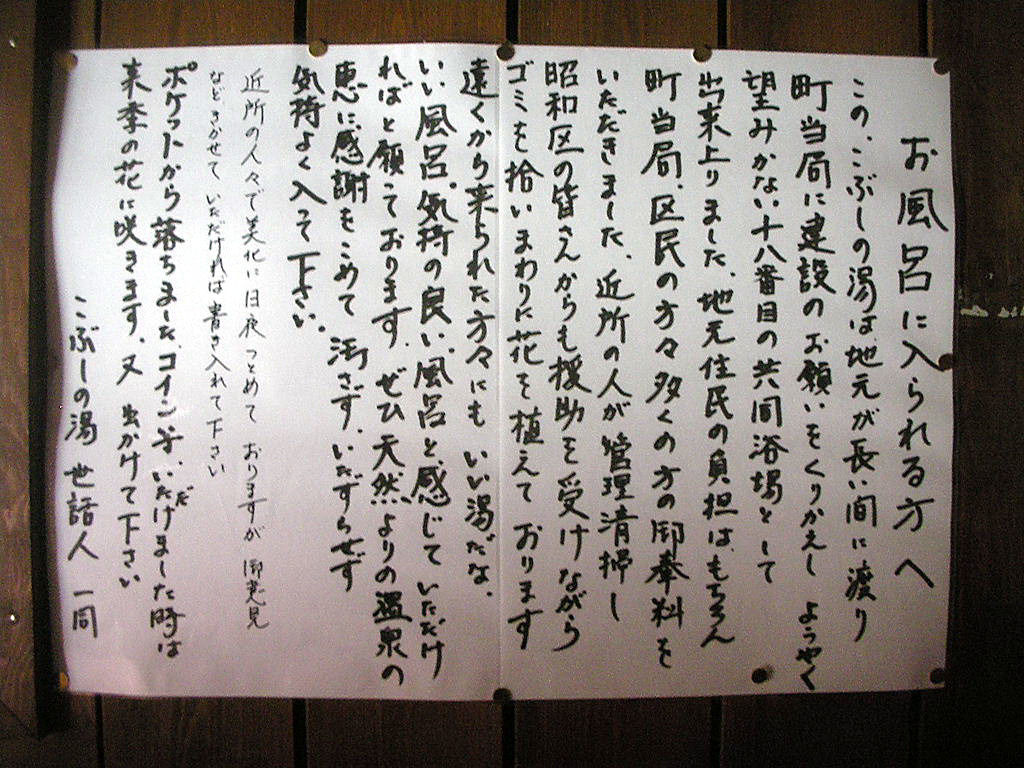 お風呂に入られる方へ
この、こぶしの湯は、地元が長い間に渡り
町当局に建設のお願いをくりかえし ようやく
望みかない十八番目の共同浴場として
出来上りました、地元住民の負担は、もちろん
町当局、区民の方々多くの方の御奉料を
いただきました、近所の人が管理清掃し
昭和区の皆さんからも援助を受けながら
ゴミを拾いまわりに花を植えて おります
遠くから来られた方々にも いい湯だな、
いい風呂、気持の良い、風呂と感じて いただけ
ればと願っております、ぜひ天然よりの温泉の
恵に感謝をこめて 汚さず、いたずらせず
気持よく入って下さい、
近所の人々で美化に日夜つとめて おりますが 御意見
などきかせていただければ書き入れて下さい
ポケットから落ちました、コイン等、いただけました時は
来季の花に咲きます、又 出かけて下さい
こぶしの湯 世話人 一同